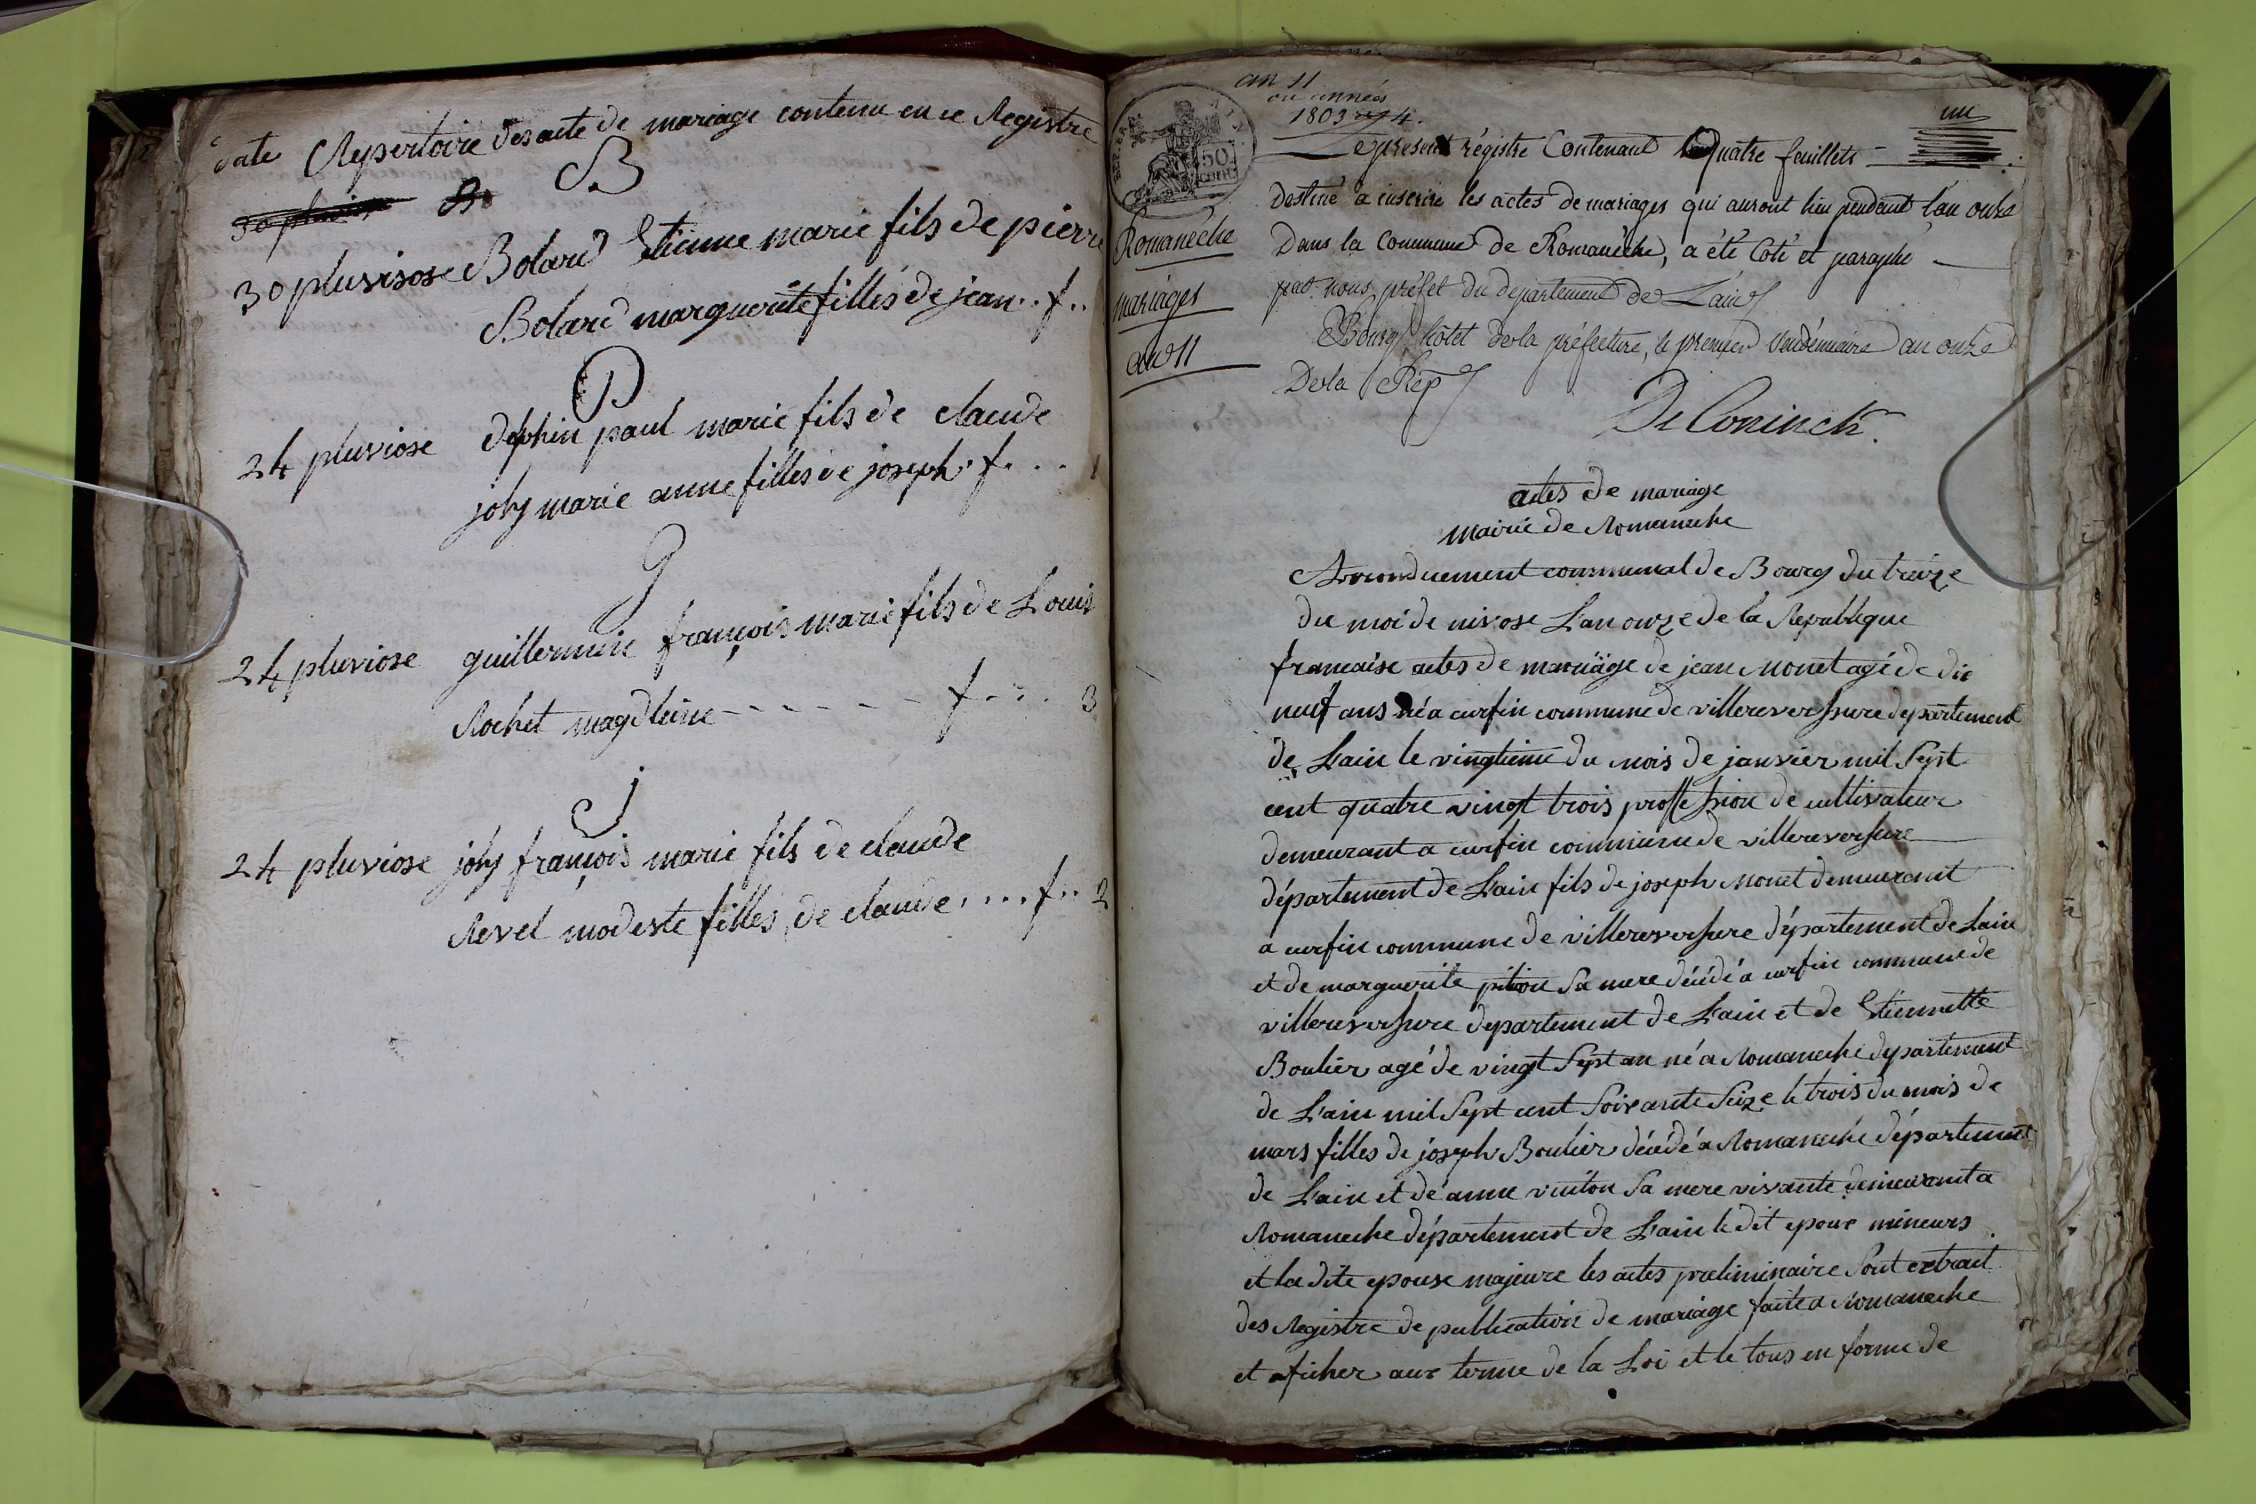 date Repertoire des acte de mariage contenu en ce Registre
B
30 pluvisose Bolard Etienne marie fils de pierre
Bolard marguerite filles de jean .. f ..
D
24 pluviose delphin paul marie fils de claude
joly marie anne filles de joseph . f . . . 1
g
24 pluviose guillermin françois marie fils de Louis
Rochet magdleine - - - - - - f . . . . 3
J
24 pluviose joly françois marie fils de claude
Revel modeste filles de claude . . . . f . . 2
an 11
ou années
1803 et 4.
un
50
cent
Romanêche
mariages
an 11
Le present régistre Contenant Quatre feuillets
destiné a inscrire les actes de mariages qui auront lieu pendant l'an onze
Dans la Commune de Romanêche, a été Coté et paraphé
par nous préfet du departement de L'ain
Bourg hôtel de la préfecture, le premier Vendémiaire an onze
De la Rep
De Coninck.
actes de mariage
mairie de Romaneche
Arrondicement communal de Bourg du treize
du moi de nivose L'an onze de la Republique
francaise actes de mariâge de jean Monet agé de dix
neuf ans né a curfin commune de villereversure departement
de L'ain le vingtieme du mois de janvier mil Sept
cent quatre vingt trois proffession de cultivateur
demeurant a curfin commune de villereversure
département de L'ain fils de joseph Monet demeurant
a curfin commune de villereversure département de L'ain
et de marguerite pition Sa mere décédé a curfin commune de
villereversure département de L'ain et de Etiennette
Boulier agé de vingt Sept an né a Romaneche departement
de L'ain mil Sept cent Soixante Seize le trois du mois de
mars filles de joseph Boulier décédé a Romaneche département
de L'ain et de anne vuiton Sa mere vivante demeurant a
Romaneche département de L'ain le dit epoux mineurs
et la dite epouse majeure les actes preliminaire Sont extrait
des Registre de publication de mariage faite a Romaneche
et aficher aux terme de la Loi et le tous en forme de